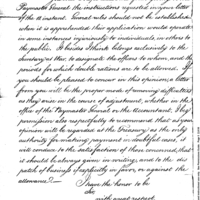 Paymaster General the instructions requested in your letter
of the 21 instant. General rules should not be established
when it is apprehended their application would operate
in some instances injuriously to individuals, in others to
the public. It besides I think belongs exclusively to the
Secretary at War to designate the officers to whom, and the
periods for which double rations are to be allowed. If
you should be pleased to concur in this opinion, a letter
from you will be the proper mode of removing difficulties
as they arise in the course of adjustment, whether in the
office of the Paymaster General or the Accountant. I beg
permission also respectfully to recommend that as your
opinion will be regarded at the Treasury as the only
authority for making payment in doubtful cases, it
will conduce to the satisfaction of those concerned, that
it should be always given in writing, and to the dis
patch of business if explicitly in favor or against the
allowance.
I have the honor to be
&c
with great respect